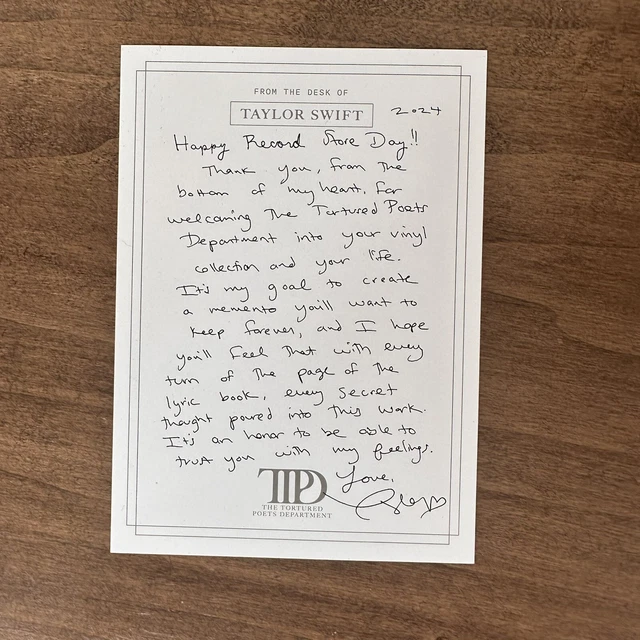 FROM THE DESK OF
TAYLOR SWIFT
2024
Happy Record Store Day!!
Thank you, from the
bottom of my heart, for
welcoming The Tortured Poets
Department into your vinyl
collection and your life.
It's my goal to create
a memento you'll want to
keep forever, and I hope
you'll feel that with every
turn of the page of the
lyric book, every secret
thought poured into this work.
It's an honor to be able to
trust you with my feelings.
Love,
TTPD
THE TORTURED
POETS DEPARTMENT